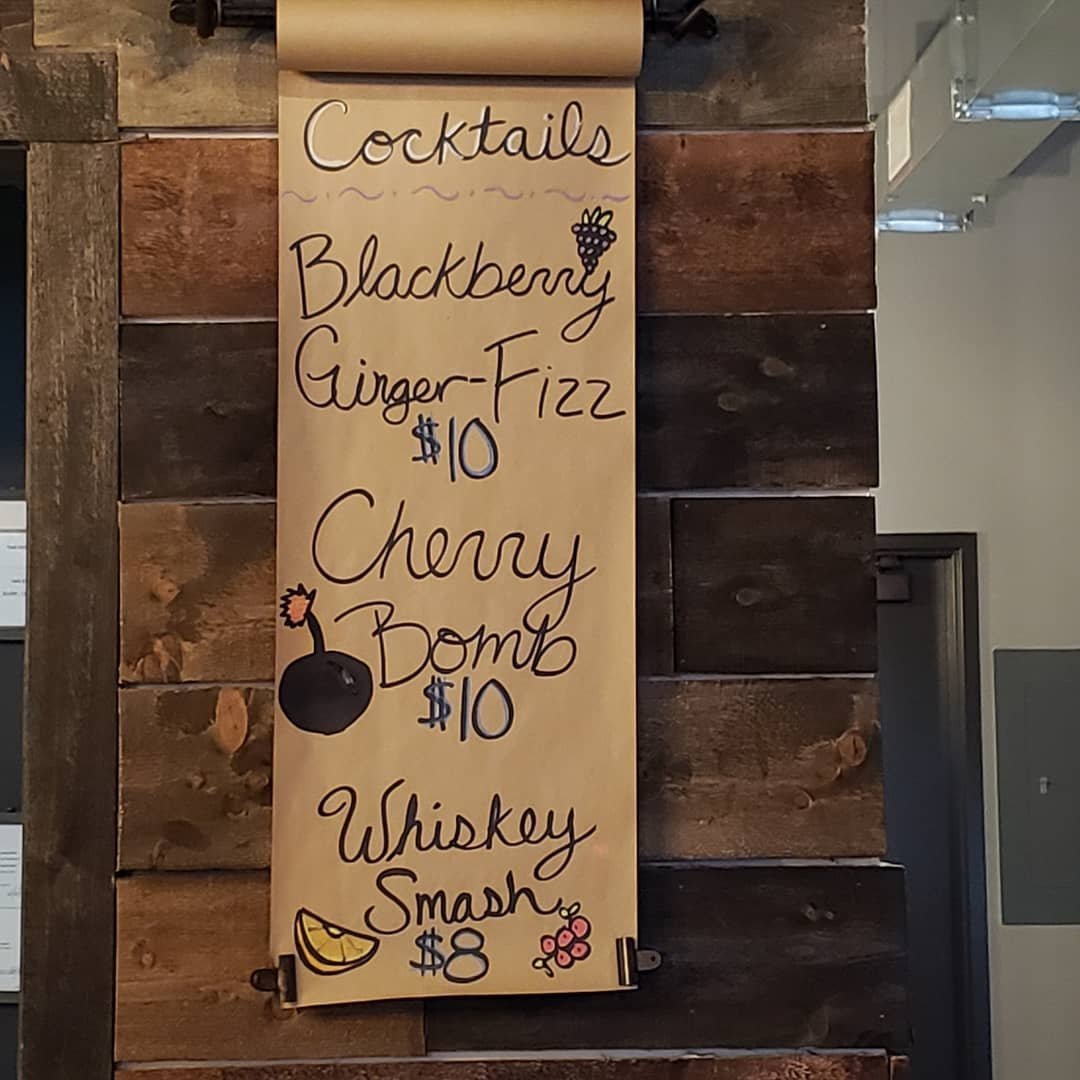 Cocktails
Blackberry
Ginger-Fizz
$10
Cherry
Bomb
$10
Whiskey
Smash
$8